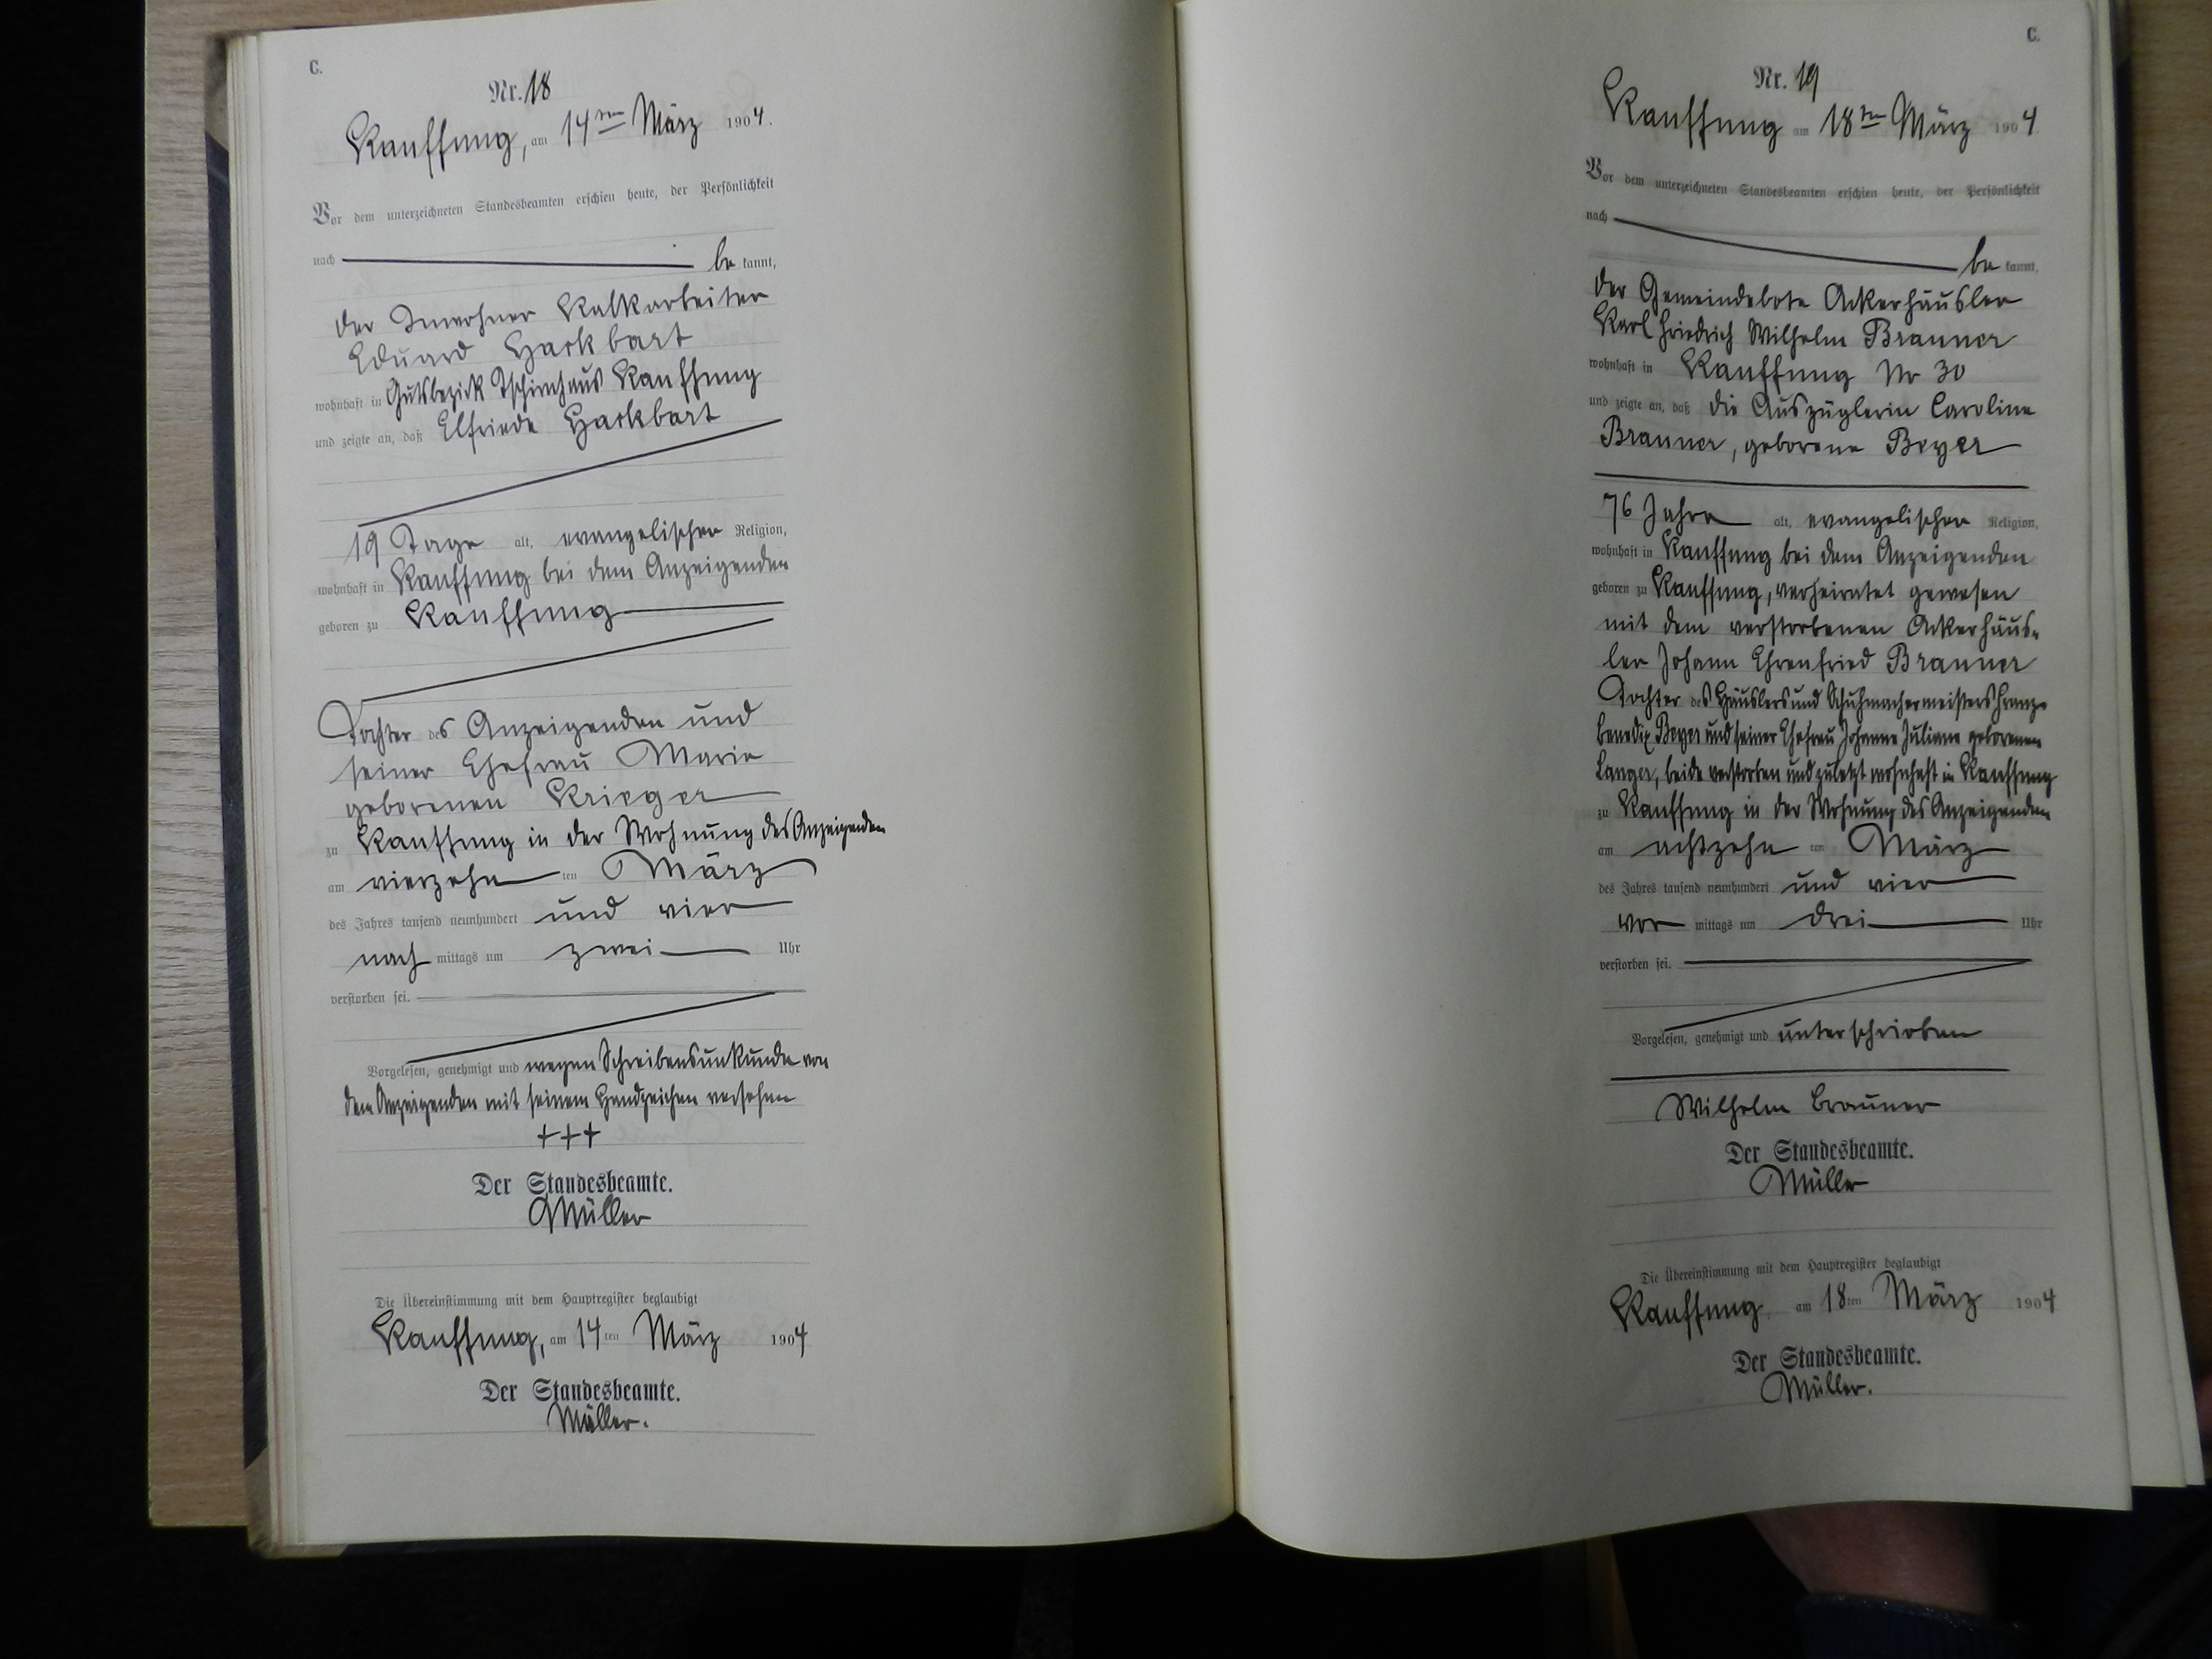 C.
Nr. 18
Kauffung, am 14ten März 1904.
Vor dem unterzeichneten Standesbeamten erschien heute, der Persönlichkeit
nach be kannt,
der Inwohner Kalkarbeiter
Eduard Hackbart
wohnhaft in Gutsbezirk Tschirnhaus Kauffung
und zeigte an, daß Elfriede Hackbart
19 Tage alt, evangelischer Religion,
wohnhaft in Kauffung bei dem Anzeigenden
geboren zu Kauffung
Tochter des Anzeigenden und
seiner Ehefrau Marie
geborenen Krieger
zu Kauffung in der Wohnung des Anzeigenden
am vierzehn ten März
des Jahres tausend neunhundert und vier
nach mittags um zwei Uhr
verstorben sei.
Vorgelesen, genehmigt und wegen Schreibensunkunde von
dem Anzeigenden mit seinem Handzeichen versehen
+++
Der Standesbeamte.
Müller
Die Übereinstimmung mit dem Hauptregister beglaubigt
Kauffung, am 14ten März 1904
Der Standesbeamte.
Müller.
C.
Nr. 19
Kauffung am 18ten März 1904.
Vor dem unterzeichneten Standesbeamten erschien heute, der Persönlichkeit
nach be kannt,
der Gemeindebote Ackerhäusler
Karl Friedrich Wilhelm Brauner
wohnhaft in Kauffung Nr 30
und zeigte an, daß die Auszüglerin Caroline
Brauner, geborene Beyer
76 Jahre alt, evangelischer Religion,
wohnhaft in Kauffung bei dem Anzeigenden
geboren zu Kauffung, verheiratet gewesen
mit dem verstorbenen Ackerhäus-
ler Johann Ehrenfried Brauner
Tochter des Häuslers und Schuhmachermeisters Franz
Benedix Beyer und seiner Ehefrau Johanne Juliane geborenen
Langer, beide verstorben und zuletzt wohnhaft in Kauffung
zu Kauffung in der Wohnung des Anzeigenden
am achtzehn ten März
des Jahres tausend neunhundert und vier
vor mittags um drei Uhr
verstorben sei.
Vorgelesen, genehmigt und unterschrieben
Wilhelm Brauner
Der Standesbeamte.
Müller
Die Übereinstimmung mit dem Hauptregister beglaubigt
Kauffung, am 18ten März 1904
Der Standesbeamte.
Müller.